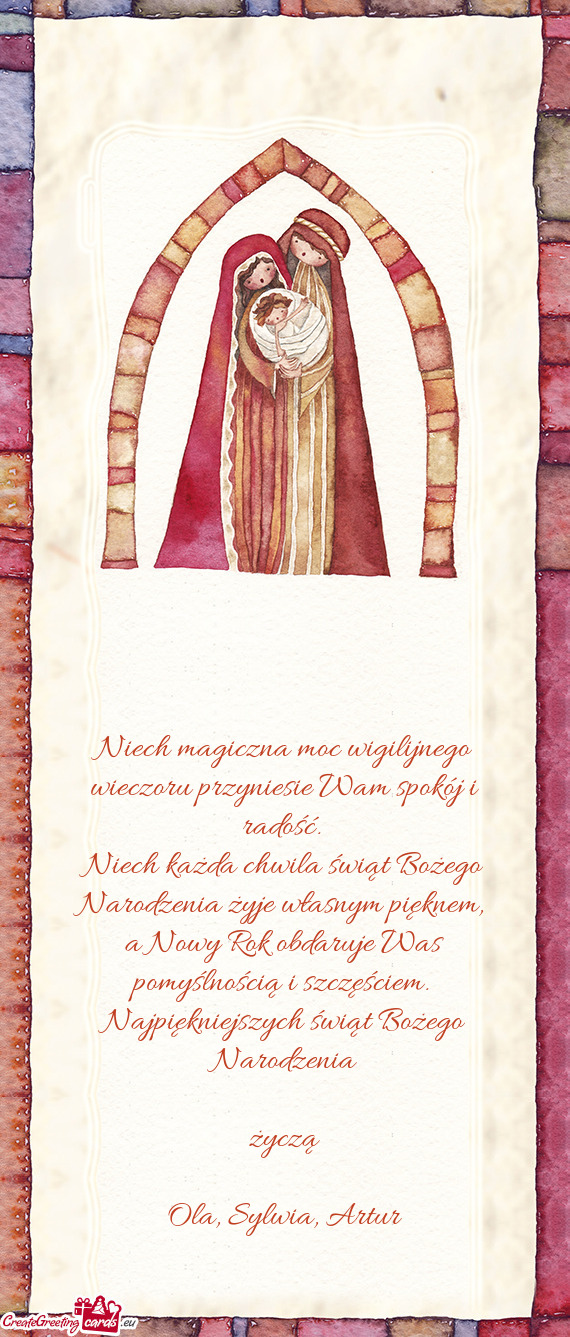 Niech magiczna moc wigilijnego
wieczoru przyniesie Wam spokój i
radość.
Niech każda chwila świąt Bożego
Narodzenia żyje własnym pięknem,
a Nowy Rok obdaruje Was
pomyślnością i szczęściem.
Najpiękniejszych świąt Bożego
Narodzenia
życzą
Ola, Sylwia, Artur
CreateGreeting cards .eu